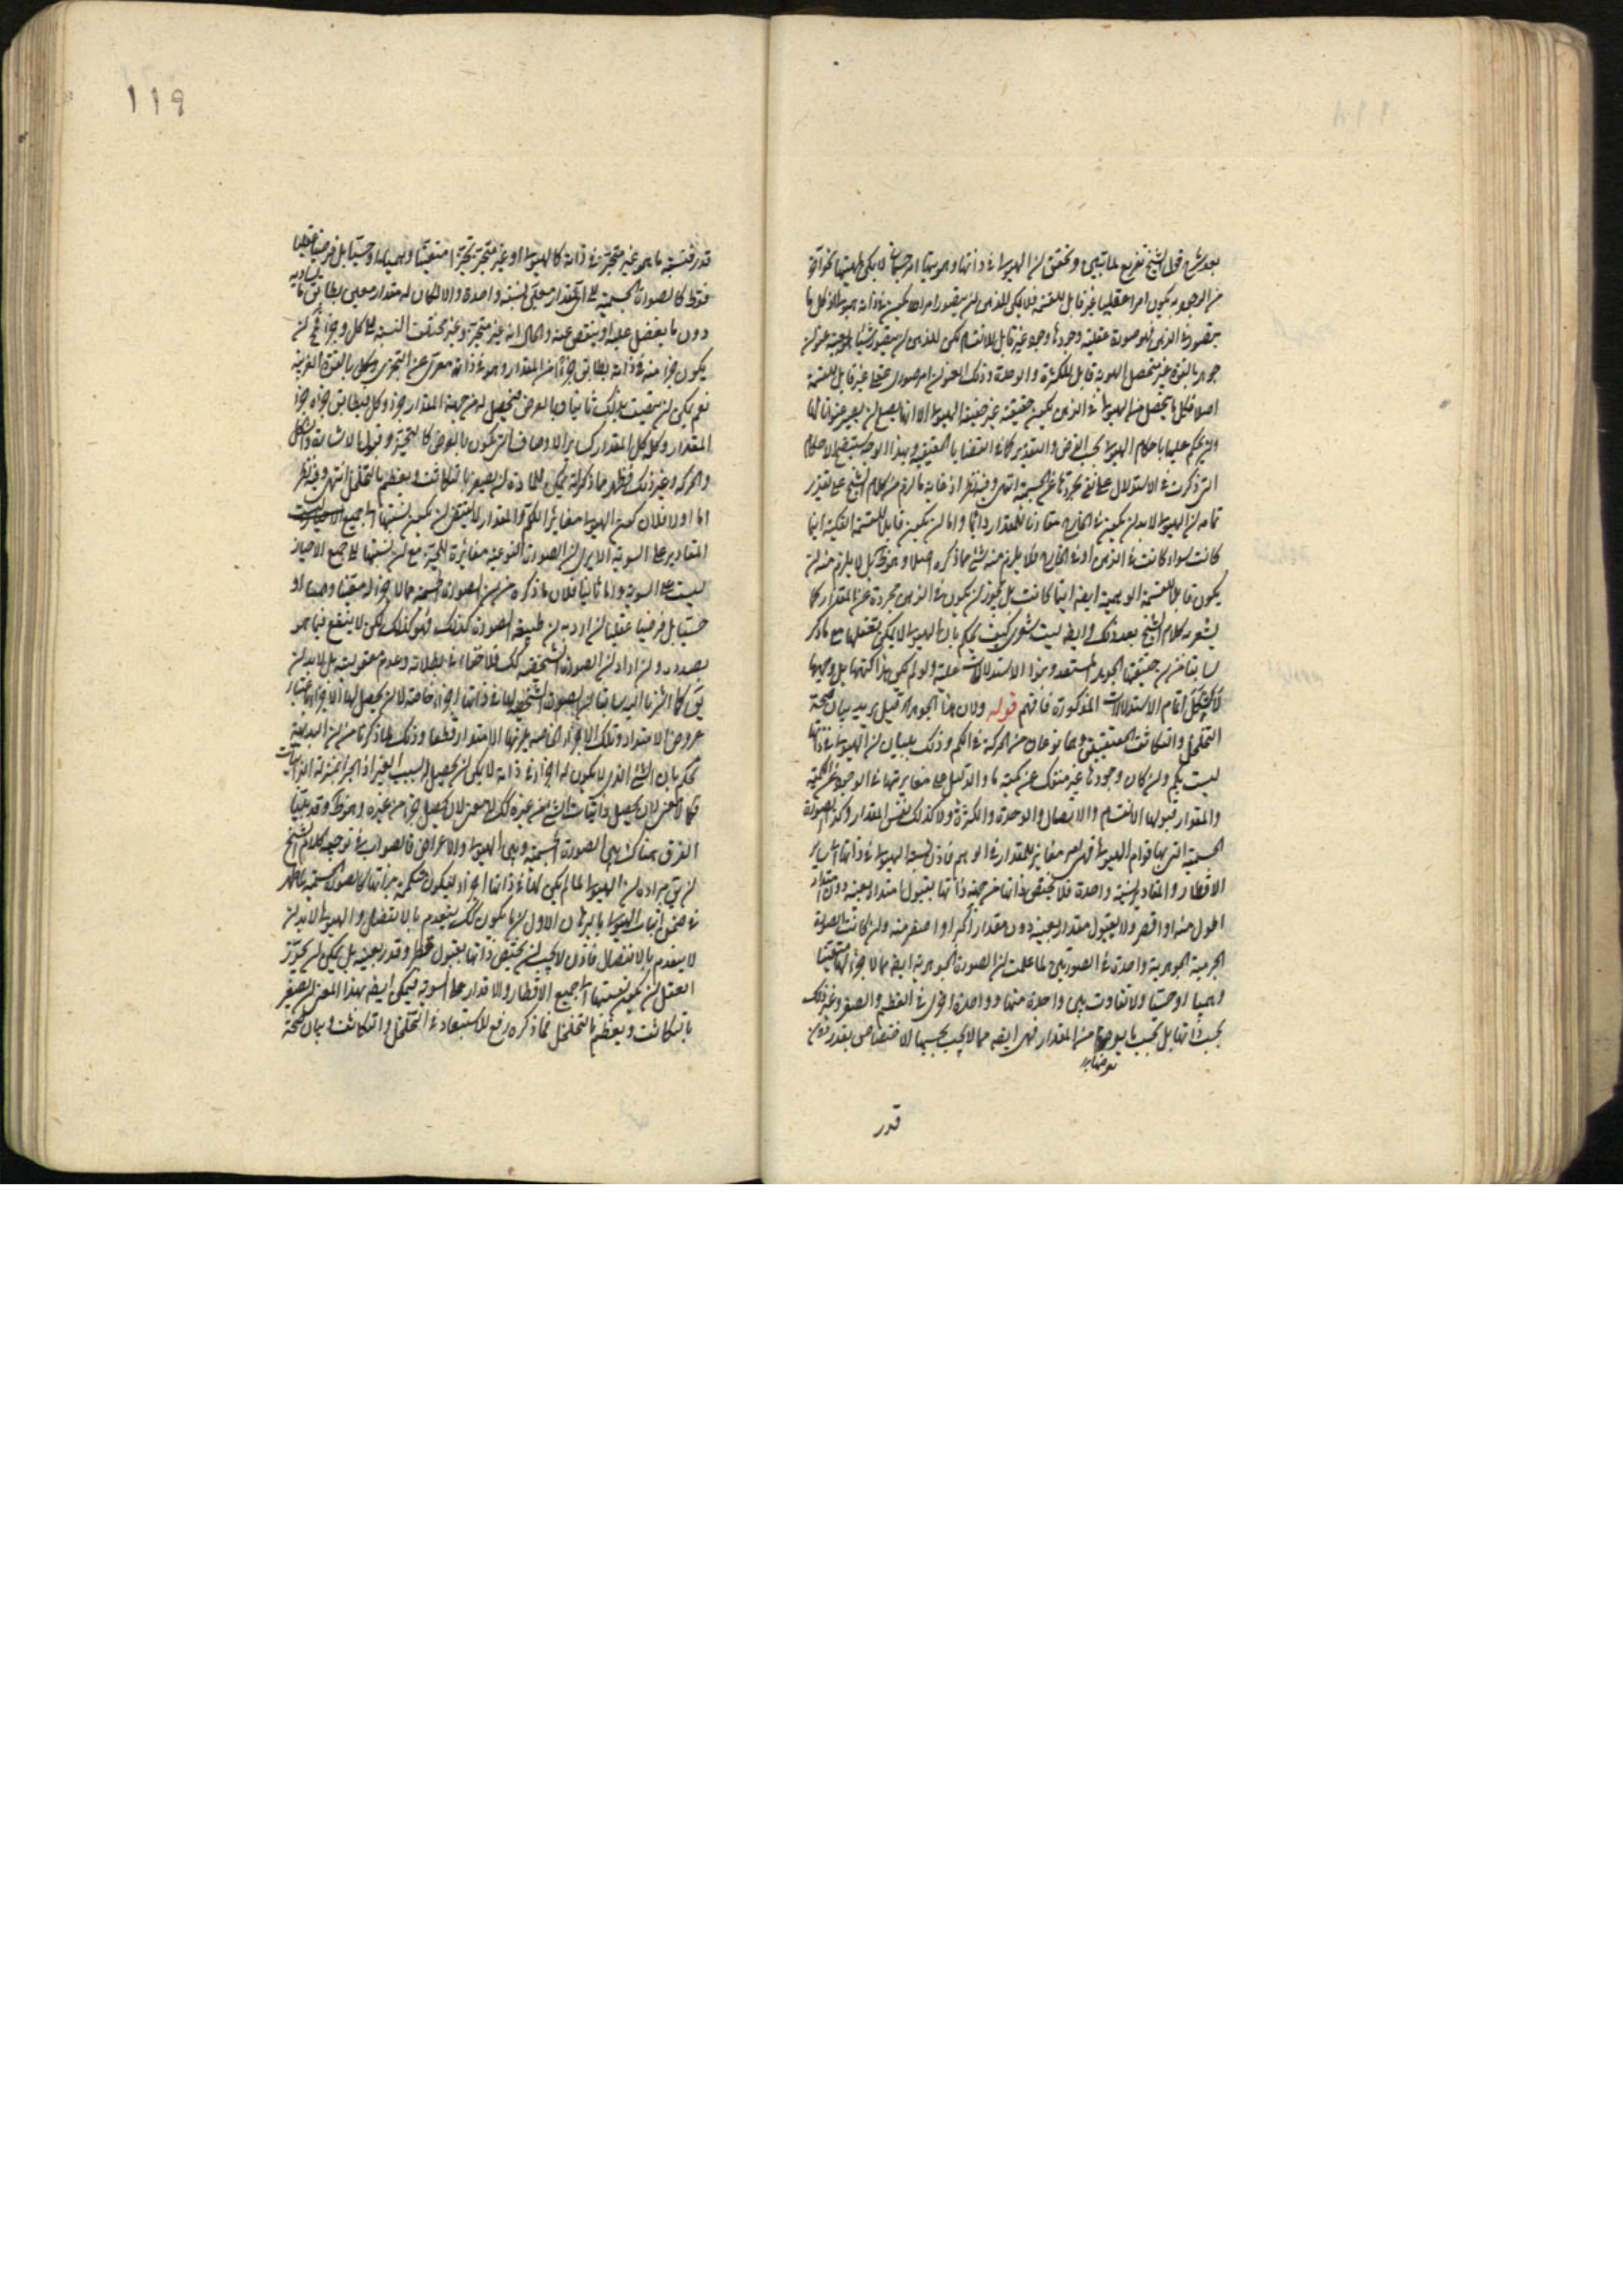 بعد شرح قول الشيخ تفريع لما تبين وتحقق ان الهيولى في ذاتها وهويتها امر
من الوجوه يكون امرا عقليا غير قابل للقسمة فلا يمكن للذهن ان يتصور امرا يكون في ذاته هيولى اذ كل ما
يتصور في الذهن فهو صورة عقلية وجودها وجود غير قابل للانقسام لكن للذهن ان يتصور شيئا
جوهر بالقوة غير متحصل الهوية قابل للكثرة والوحدة وذلك العنوان امر صوري عقلي غير قابل للقسمة
اصلا فكل ما يتحصل من الهيولى في الذهن يكون حقيقته غير حقيقة الهيولى الا انها يصلح لان يصير عنوانا لها
وان يحكم عليها باحكام الهيولى بحسب الفرض والتقدير كما في القضايا الحقيقية وبهذا الوجه يستصح الاحكام
التي ذكرت في الاستدلال على تجردها عن الجسمية انتهى وفيه نظر اذ غاية ما لزم من كلام الشيخ على تقدير
تمامه ان الهيولى لا بد ان يكون في الخارج مقارنا للمقدار دائما واما ان يكون قابلا للقسمة الفكية اينما
كانت سواء كانت في الذهن او في الخارج فلا يلزم منه شيء مما ذكره اصلا وهو ظ بل لا يلزم منه ان
يكون قابلا للقسمة الوهمية ايضا اينما كانت بل يجوز ان يكون في الذهن مجردة عن المقدار كما
يشعر به كلام الشيخ بعد ذلك وايضا ليت شعري كيف يحكم بان الهيولى لا يمكن تعقلها مع ما ذكر
سابقا من ان حقيقتها الجوهر المستعد وهذا الاستدلال عليه ولو لم يكن هذا كنهها بل وجهها
لاشكل اتمام الاستدلالات المذكورة فافهم قوله ولان هذا الجوهر اه قيل يريد بيان صحة
التخلخل والتكاثف الحقيقيين وهما نوعان من الحركة في الكم وذلك ببيان ان الهيولى في ذاتها
ليست بكم وان كان وجودها غير منفك عن كمية ما والدليل على مغايرتها في الوجود عن الكمية
والمقدار قبولها الانقسام والاتصال والوحدة والكثرة ولا كذلك نفس المقدار وكذا الصورة
الجسمية التي بها قوام الهيولى فهي امر مغاير للمقدار في الوهم فاذن نسبة الهيولى في ذاتها الى سائر
الاقطار والمقادير نسبة واحدة فلا يختص ذاتها من جهة ذاتها بقبول امتداد بعينه دون امتداد
اطول منه او اقصر ولا بقبول مقدار بعينه دون مقدار اكبر او اصغر منه وان كانت الصورة
الجرمية الجوهرية واحدة في الصورتين لما علمت ان الصورة الجوهرية ايضا مما لا جزء لها متعينا
وهميا او حسيا ولا تفاوت بين واحدة منها وواحدة اخرى في العظم والصغر وغير ذلك
بحسب ذاتها بل بحسب ما يعرضها من المقدار فهي ايضا مما لا يجب بحسبها الاختصاص بقدر دون
قدر
119
قدر فنسبة ما هو غير متجزئ في ذاته كالهيولى او غير متجزئ تجزءا متعينا وهميا او حسيا بل فرضيا عقليا
فقط كالصورة الجسمية الى اي مقدار معين نسبة واحدة والا لكان له مقدار معين يطابق ما يساويه
دون ما يفضل عليه او ينقص عنه والحال انه غير متجزئ وغير مختلف النسبة الى كل وجزء فمح ان
يكون جزء منه في ذاته يطابق جزءا من المقدار وهو في ذاته معرى عن التجزي وكل بالقوة القريبة
نعم يمكن ان يتعين بذلك ثانيا وبالعرض فتحصل له من جهة المقدار جزء وكل فيطابق جزءه جزء
المقدار وكله كل المقدار كسائر الاوصاف التي تكون بالعرض كالتحيز وقبول الاشارة والشكل
والحركة وغير ذلك فظهر مما ذكر انه يمكن للمادة ان يصغر بالتكاثف ويعظم بالتخلخل انتهى وفيه نظر
اما اولا فلان كون الهيولى مغايرا للكم والمقدار لا يقتضي ان يكون نسبتها الى جميع
المقادير على السوية الا يرى ان الصورة النوعية مغايرة للحيز مع ان نسبتها الى جميع الاحياز
ليست على السوية واما ثانيا فلان ما ذكره من ان الصورة الجسمية مما لا جزء له متعينا وهميا او
حسيا بل فرضيا عقليا ان اراد به ان طبيعة الصورة كذلك فهو كذلك لكن لا ينفع فيما هو
بصدده وان اراد ان الصورة الشخصية كك فلا خفاء في بطلانه وعدم معقوليته بل لا بد ان
يق كما اشرنا اليه سابقا ان الصورة الشخصية لها في ذاتها اجزاء خاصة لا ان يحصل لها الاجزاء باعتبار
عروض الامتداد وتلك الاجزاء الخاصة يلزمها الامتداد قطعا وذلك لما ذكرنا من ان البديهة
تحكم بان الشيء الذي لا يكون له اجزاء في ذاته لا يمكن ان يحصل له بسبب الغير اذ الجزء بمنزلة الذاتيات
فكما لا معنى لان يحصل ذاتيات الشيء من غيره كك لا معنى لان يحصل جزء من غيره وهو ظ وقد بينا
الفرق هناك بين الصورة الجسمية وبين الهيولى والاعراض فالصواب في توجيه كلام الشيخ
ان يق مراده ان الهيولى لما لم يكن لها في ذاتها اجزاء لتكون متكممة بذاتها كالصورة الجسمية لما ظهر
في ضمن اثبات الهيولى بالبرهان الاول ان ما يكون كك ينعدم بالانفصال والهيولى لا بد ان
لا ينعدم بالانفصال فاذن لا يجب ان يختص ذاتها بقبول قطر وقدر بعينه بل يمكن ان يجوز
العقل ان يكون نسبتها الى جميع الاقطار والاقدار على السوية فيمكن ايضا بهذا المعنى ان يصغر
بالتكاثف ويعظم بالتخلخل فما ذكره رفع لاستبعاد في التخلخل والتكاثف وبيان صحة